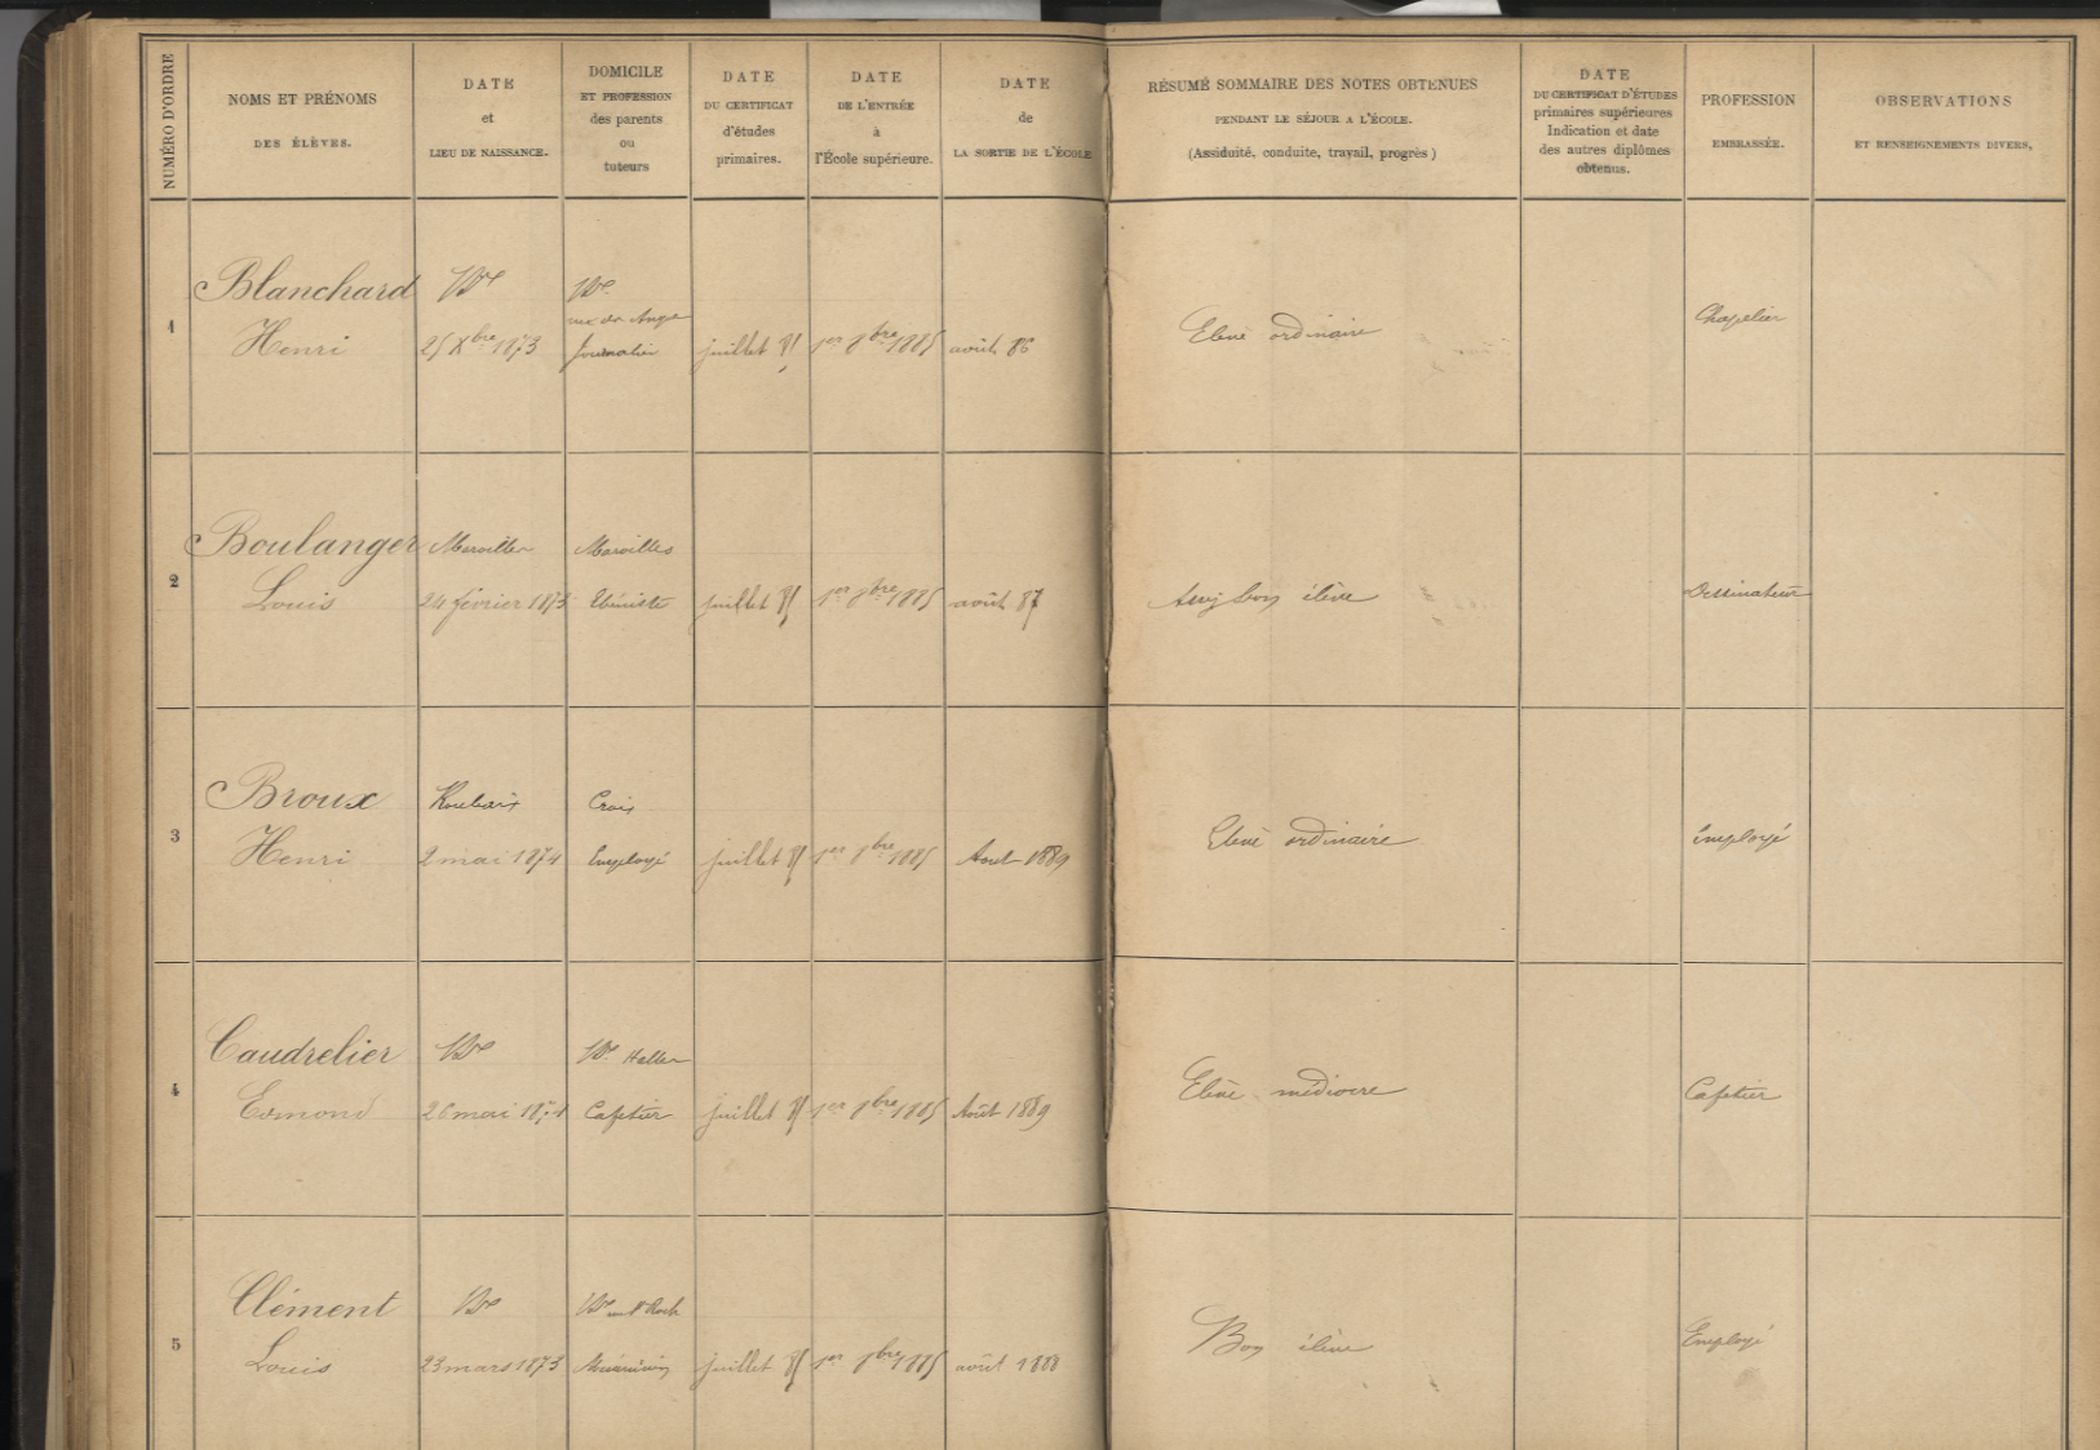 NUMÉRO D'ORDRE
NOMS ET PRÉNOMS
DES ÉLÈVES.
DATE
et
LIEU DE NAISSANCE.
DOMICILE
ET PROFESSION
des parents
ou
tuteurs
DATE
DU CERTIFICAT
d'études
primaires.
DATE
DE L'ENTRÉE
à
l'École supérieure.
DATE
de
LA SORTIE DE L'ÉCOLE
RÉSUMÉ SOMMAIRE DES NOTES OBTENUES
PENDANT LE SÉJOUR A L'ÉCOLE.
(Assiduité, conduite, travail, progrès)
DATE
DU CERTIFICAT D'ÉTUDES
primaires supérieures
Indication et date
des autres diplômes
obtenus.
PROFESSION
EMBRASSÉE.
OBSERVATIONS
ET RENSEIGNEMENTS DIVERS,
1
Blanchard
Henri
25 Xbre 1873
Journalier
juillet 85
1er 8bre 1885
août 86
Elève ordinaire
Chapelier
2
Boulanger
Louis
Maroilles
24 février 1873
Maroilles
Ebéniste
juillet 85
1er 8bre 1885
août 87
Assez bon élève
Dessinateur
3
Broux
Henri
Roubaix
2 mai 1874
Croix
Employé
juillet 85
1er 8bre 1885
Aout 1889
Elève ordinaire
Employé
4
Caudrelier
Edmond
26 mai
Cafetier
juillet 85
1er 8bre 1885
Août 1889
Elève médiocre
Cafetier
5
Clément
Louis
23 mars 1873
juillet 85
1er 8bre 1885
août 1888
Bon élève
Employé